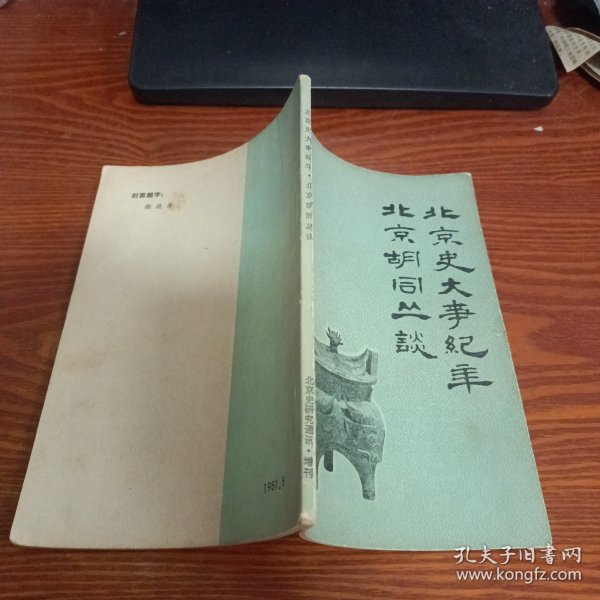 北京史大事紀年
北京胡同丛談
北京史大事纪年·北京胡同丛谈
北京史研究通讯·增刊
封面题字：
1981.8
孔夫子旧书网
www.kongfz.com